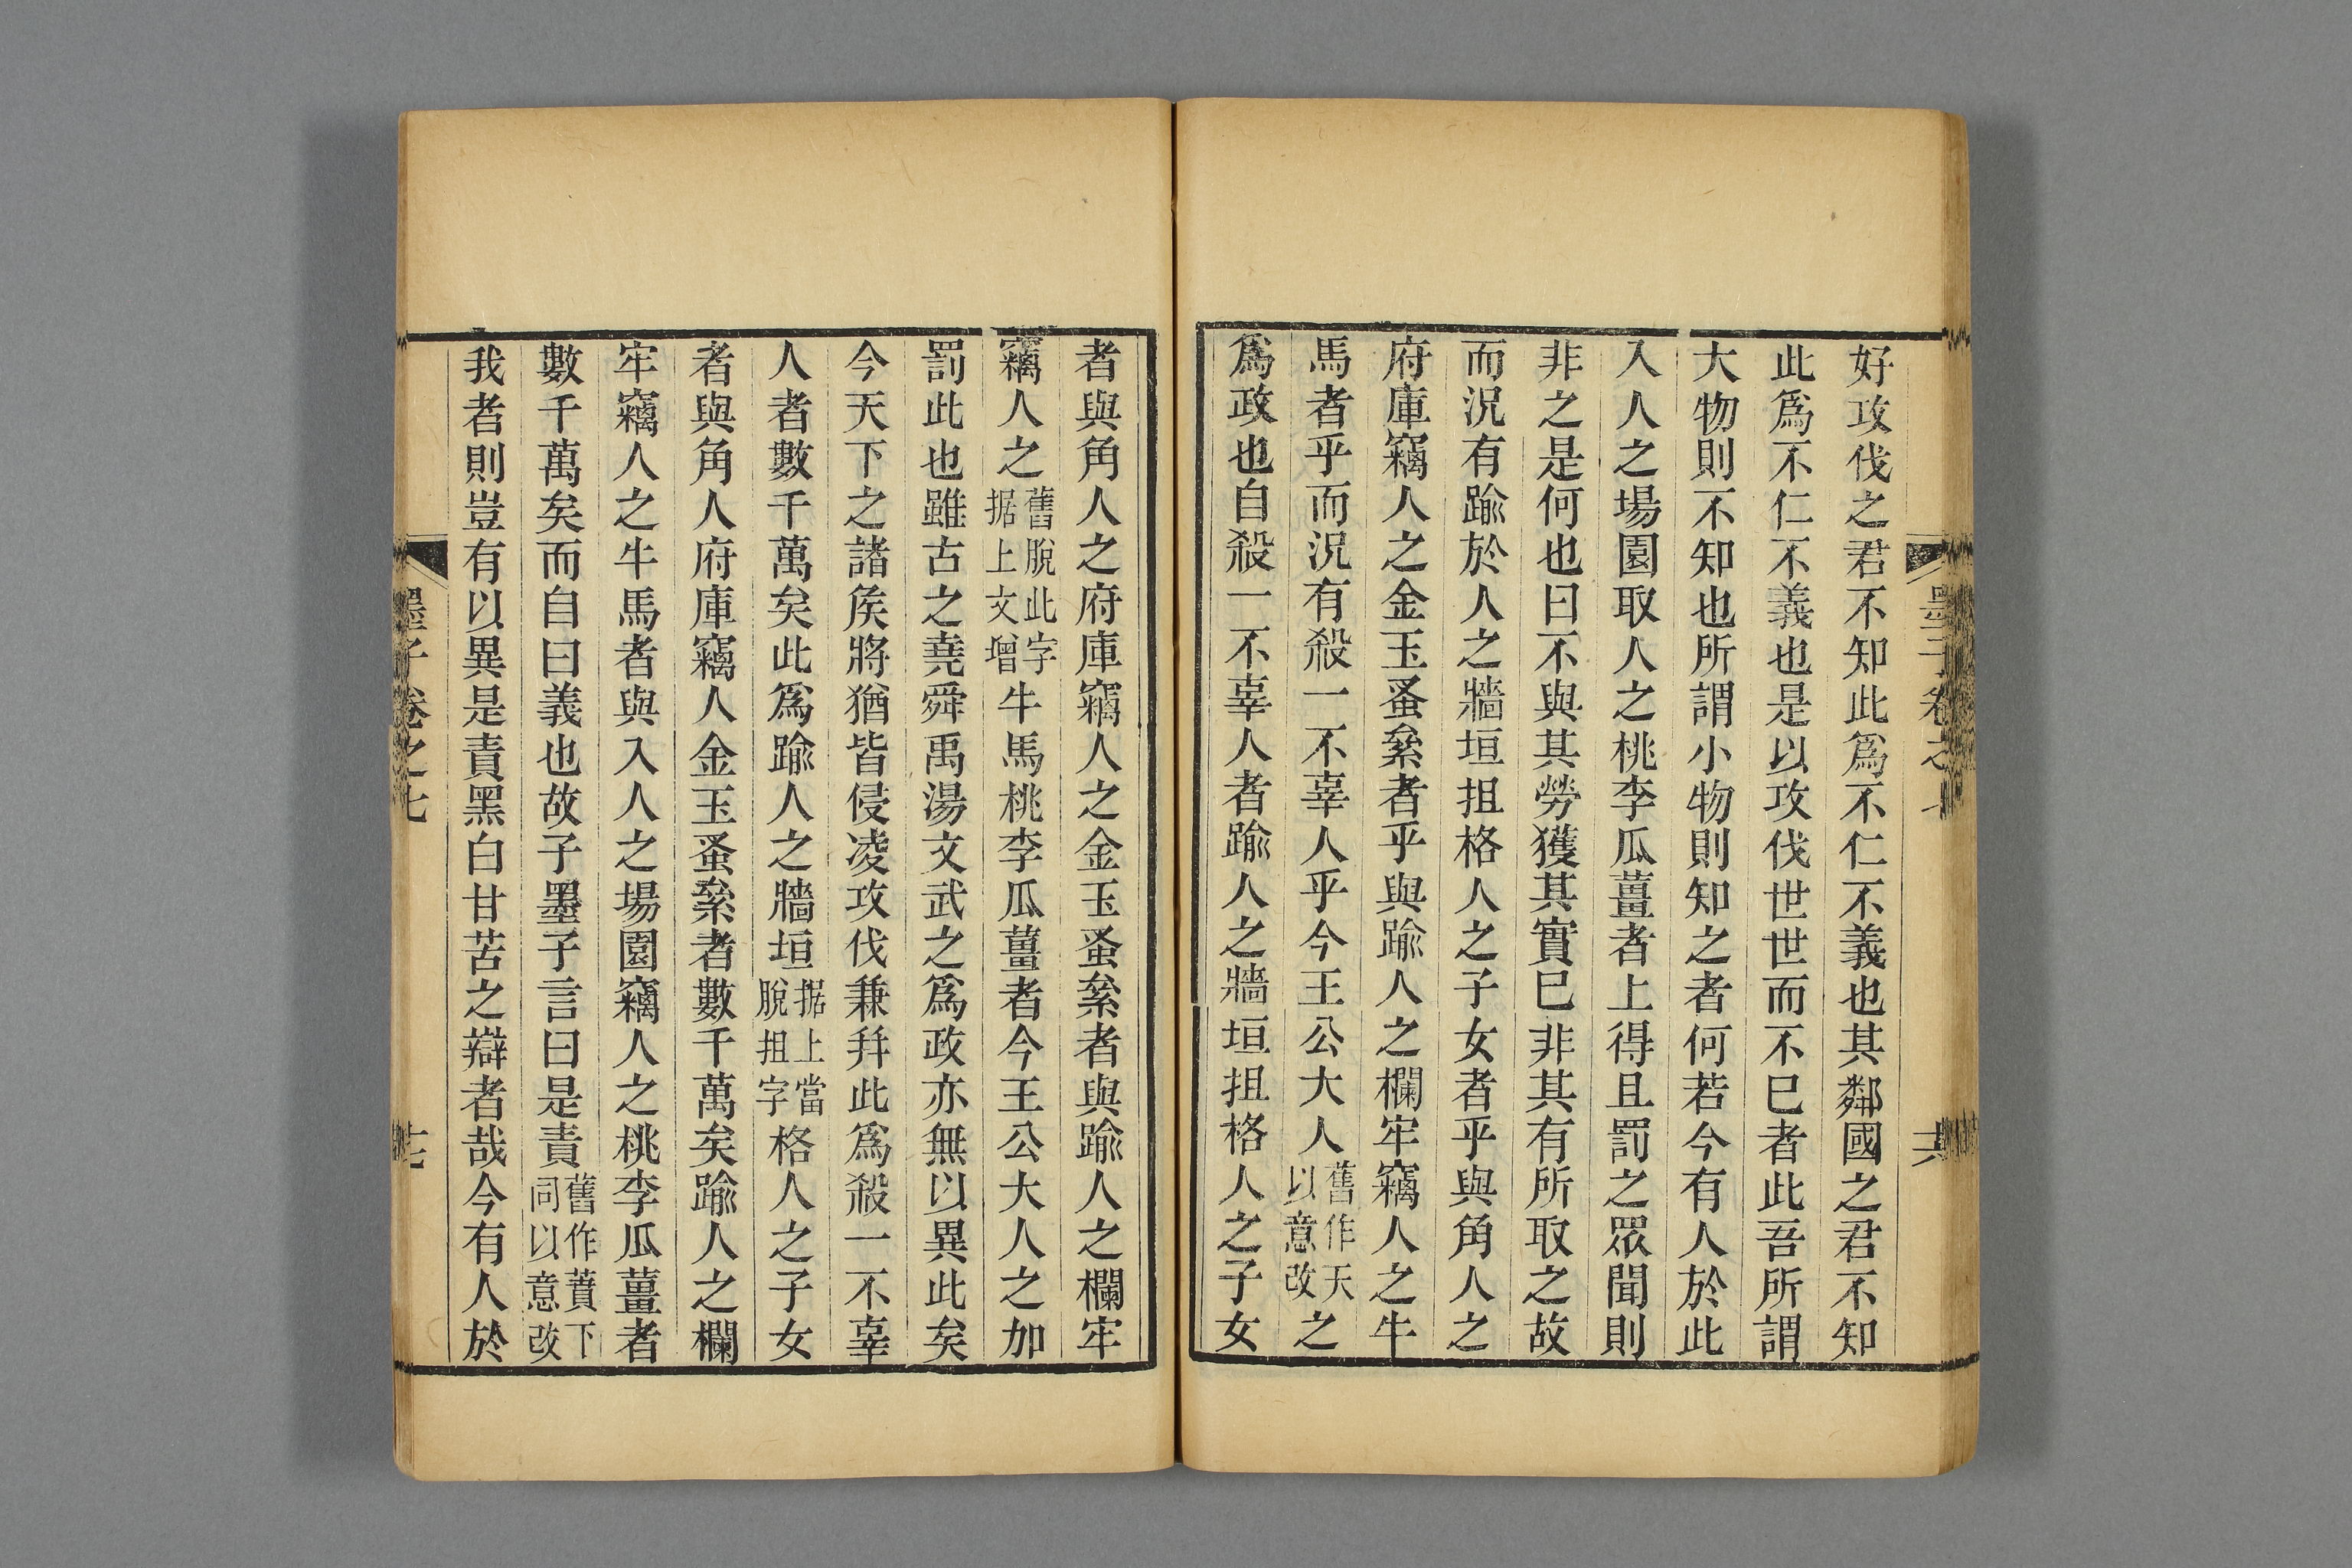 墨子卷之七 十六
好攻伐之君不知此爲不仁不義也其鄰國之君不知
此爲不仁不義也是以攻伐世世而不巳者此吾所謂
大物則不知也所謂小物則知之者何若今有人於此
入人之場園取人之桃李瓜薑者上得且罰之眾聞則
非之是何也曰不與其勞獲其實巳非其有所取之故
而況有踰於人之牆垣抯格人之子女者乎與角人之
府庫竊人之金玉蚤絫者乎與踰人之欄牢竊人之牛
馬者乎而況有殺一不辜人乎今王公大人舊作天以意改之
爲政也自殺一不辜人者踰人之牆垣抯格人之子女
者與角人之府庫竊人之金玉蚤絫者與踰人之欄牢
竊人之舊脫此字据上文增牛馬桃李瓜薑者今王公大人之加
罰此也雖古之堯舜禹湯文武之爲政亦無以異此矣
今天下之諸矦將猶皆侵凌攻伐兼幷此爲殺一不辜
人者數千萬矣此爲踰人之牆垣据上當脫抯字格人之子女
者與角人府庫竊人金玉蚤絫者數千萬矣踰人之欄
牢竊人之牛馬者與入人之場園竊人之桃李瓜薑者
數千萬矣而自曰義也故子墨子言曰是責舊作蕡下同以意改
我者則豈有以異是責黑白甘苦之辯者哉今有人於
墨子卷之七 十七